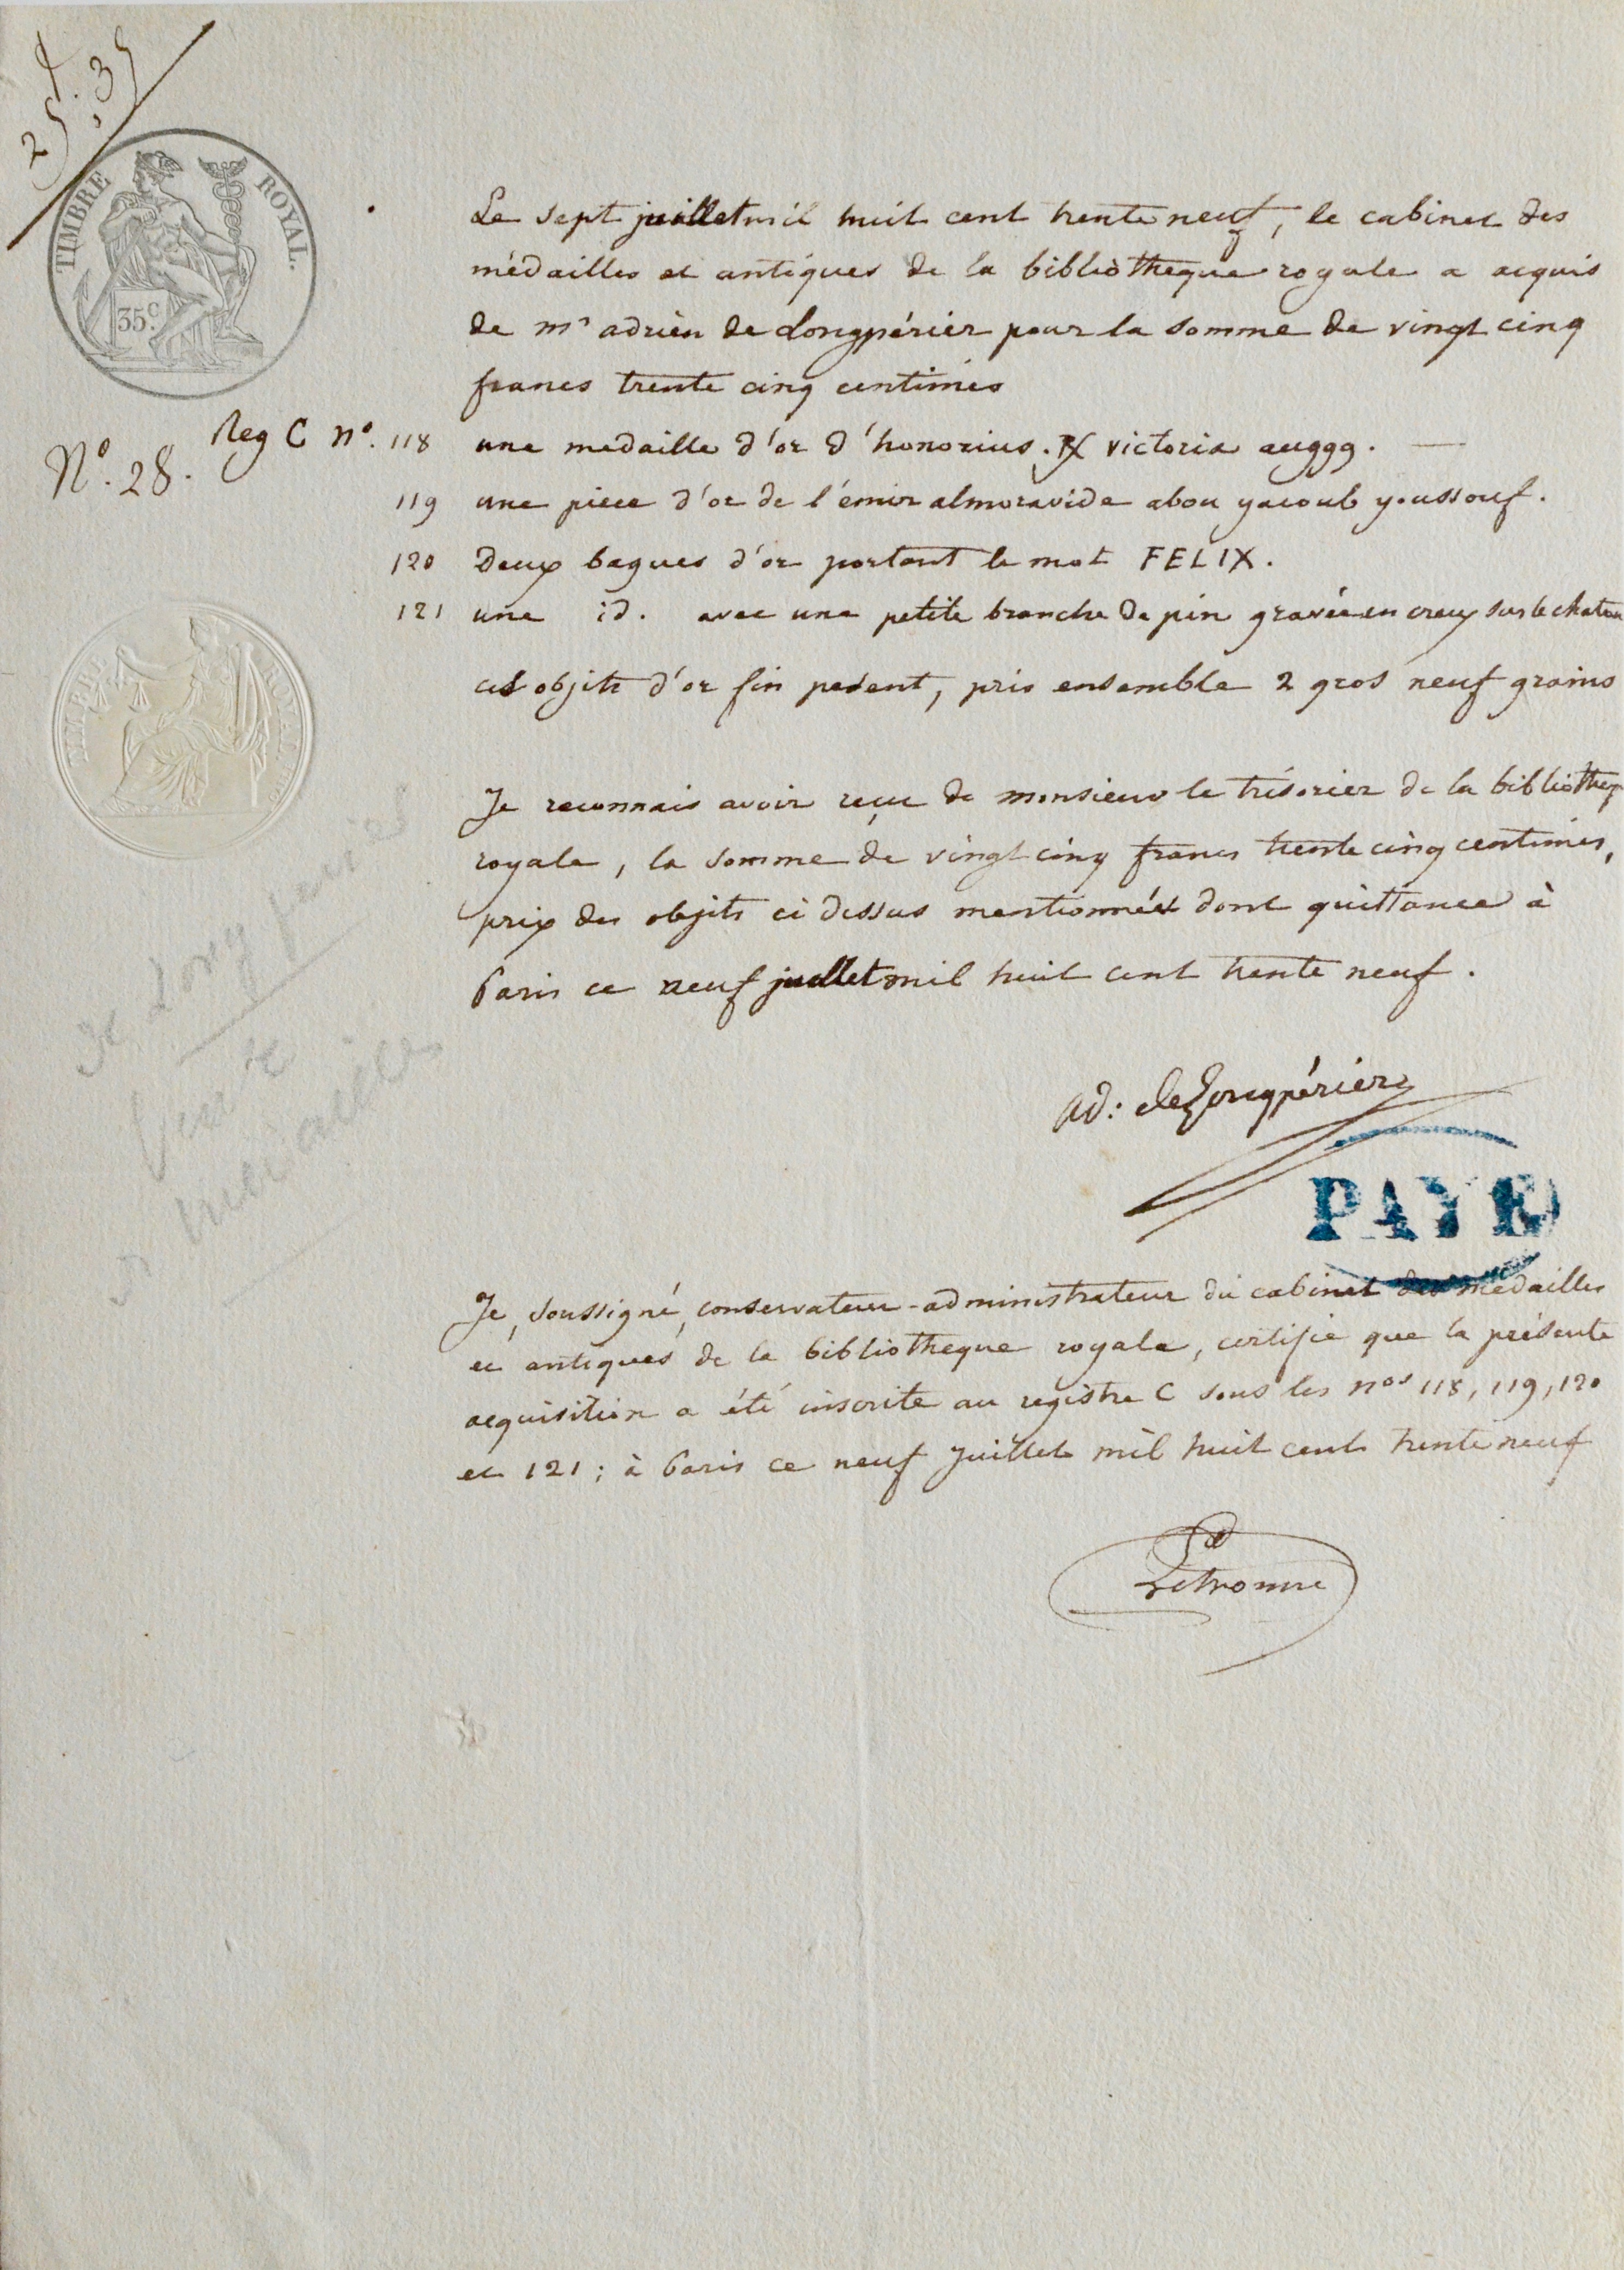 f.
25,35
TIMBRE ROYAL.
35c.
Le sept juillet mil huit cent trente neuf, le cabinet des
médailles et antiques de la bibliothèque royale a acquis
de mr adrien de Longpérier pour la somme de vingt cinq
francs trente cinq centimes
No. 28. Reg C no. 118 une medaille d'or d'honorius. R/ victoria auggg. —
119 une piece d'or de l'émir almoravide abou yacoub youssouf.
120 Deux bagues d'or portant le mot FELIX.
121 une id. avec une petite branche de pin gravée en creux sur le chaton
ces objets d'or fin pesent, pris ensemble 2 gros neuf grains
Je reconnais avoir reçu de monsieur le trésorier de la biblioth
royale, la somme de vingt cinq francs trente cinq centimes,
prix des objets ci dessus mentionnés dont quittance à
Paris ce neuf juillet mil huit cent trente neuf.
de Longperier
ad: de Longpérier
PAYÉ
Je, soussigné, conservateur-administrateur du cabinet des médailles
et antiques de la bibliotheque royale, certifie que la présente
acquisition a été inscrite au registre C sous les nos 118, 119, 120
et 121; à Paris ce neuf Juillet mil huit cent trente neuf
Letronne